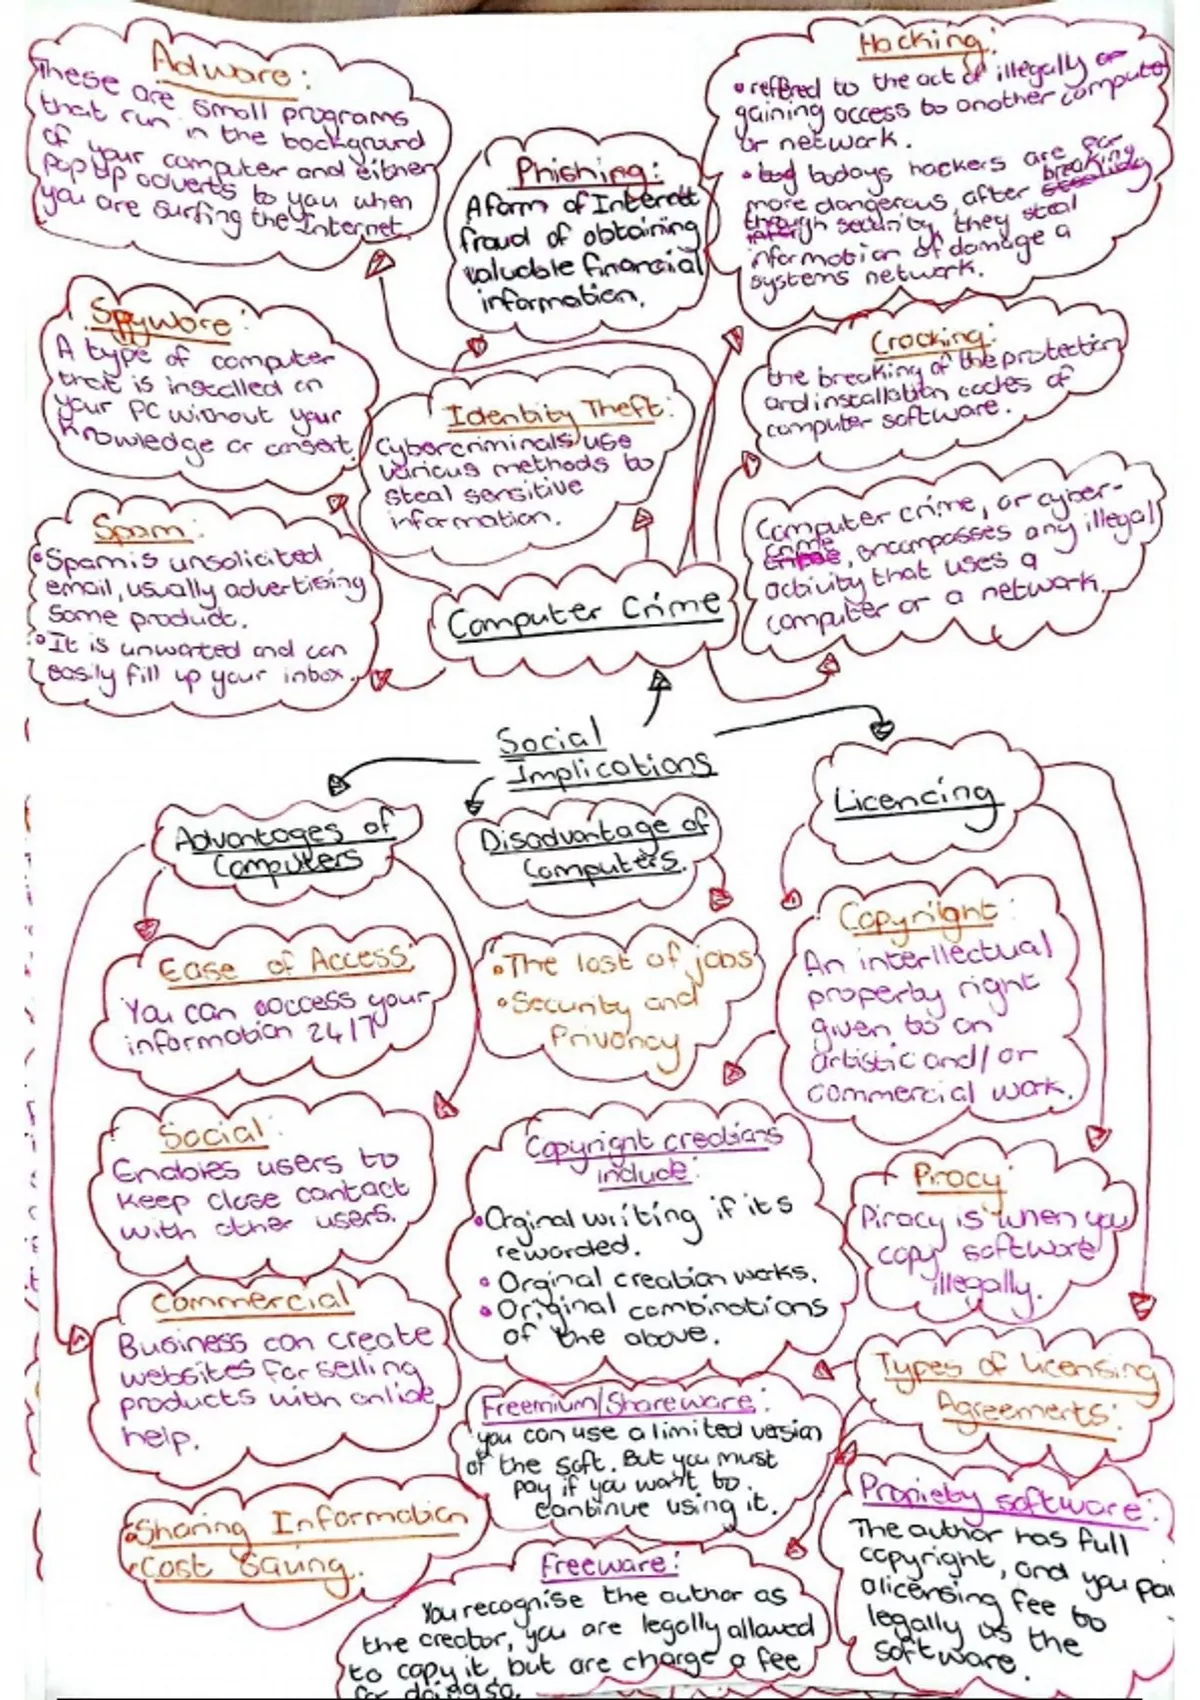 Adware:
These are small programs
that run in the background
of your computer and either
pop up adverts to you when
you are surfing the Internet
Phishing:
A form of Internet
fraud of obtaining
valuable financial
information.
Hacking:
• reffered to the act of illegally or
gaining access to another computer
or network.
• bodays hackers are far
more dangerous, after breaking
through security, they steal
information of damage a
systems network.
Spyware:
A type of computer
that is installed on
your PC without your
knowledge or consent.
Identity Theft:
Cybercriminals use
various methods to
steal sensitive
information.
Cracking:
the breaking of the protection
and installation codes of
computer software.
Spam:
• Spam is unsolicited
email, usually advertising
some product.
• It is unwanted and can
easily fill up your inbox.
Computer Crime
Computer crime, or cyber-
crime, encompasses any illegal
activity that uses a
computer or a network.
Social
Implications
Advantages of
Computers
Disadvantage of
Computers.
Licencing
Ease of Access:
You can access your
information 24/7
• The lost of jobs
• Security and
Privancy
Copyright:
An interllectual
property right
given to an
artistic and/or
commercial work.
Social:
Enables users to
keep close contact
with other users.
Copyright creations
include:
• Orginal writing if its
rewarded.
• Orginal creation works.
• Original combinations
of the above.
Piracy:
Piracy is when you
copy software
illegally.
Commercial
Business can create
websites for selling
products with online
help.
Types of Licensing
Agreements:
Freemium/Shareware:
you can use a limited version
of the soft. But you must
pay if you want to
continue using it.
Propriety software:
The author has full
copyright, and you pay
a licensing fee to
legally us the
software.
• Sharing Information
• Cost Saving.
Freeware:
You recognise the author as
the creator, you are legally allowed
to copy it, but are charge a fee
for doing so.